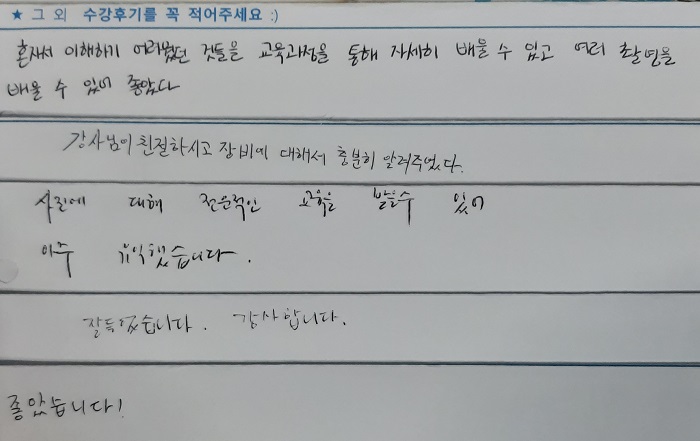 ★ 그 외 수강후기를 꼭 적어주세요 :)
혼자서 이해하기 어려웠던 것들을 교육과정을 통해 자세히 배울 수 있고 여러 촬영을
배울 수 있어 좋았다
강사님이 친절하시고 장비에 대해서 충분히 알려주었다.
사진에 대해 전문적인 교육을 받을수 있어
아주 유익했습니다.
잘들었습니다. 감사합니다.
좋았습니다!